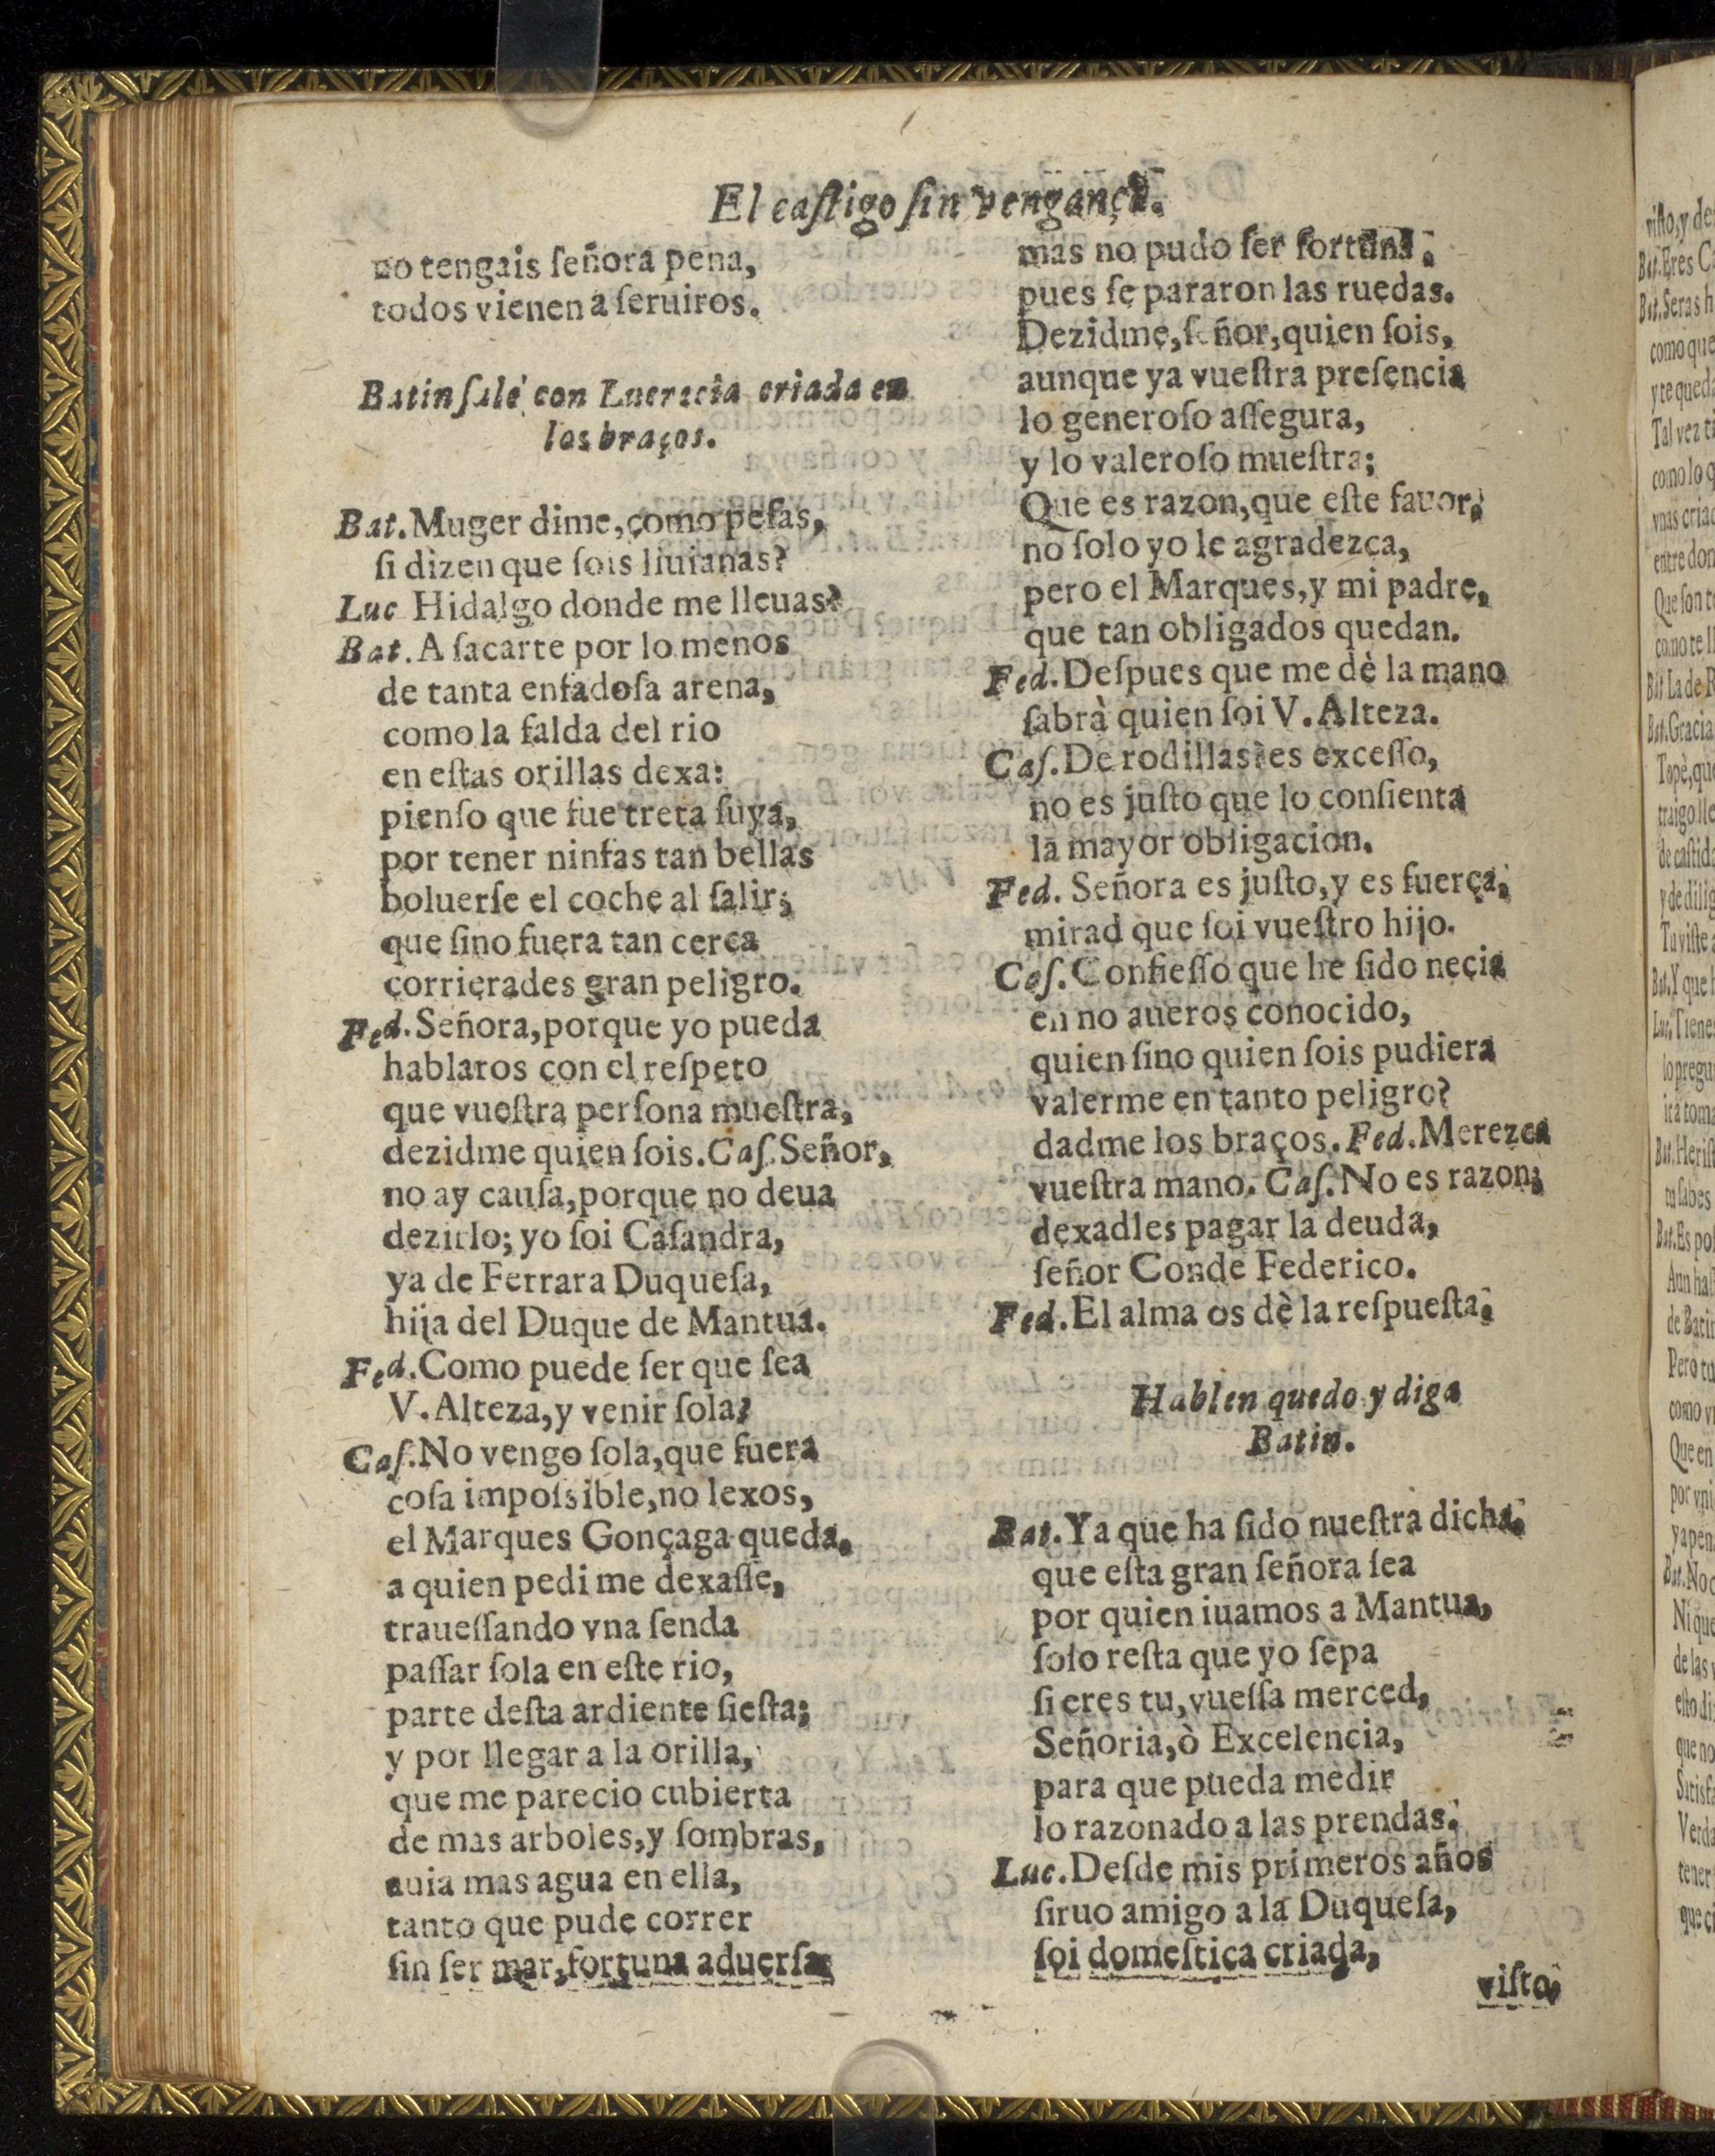 El castigo sin vengança.
no tengais señora pena,
todos vienen a seruiros.
Batin sale con Lucrecia criada en
los braços.
Bat. Muger dime, como pesas,
si dizen que sois liuianas?
Luc Hidalgo donde me lleuas?
Bat. A sacarte por lo menos
de tanta enfadosa arena,
como la falda del rio
en estas orillas dexa:
pienso que fue treta suya,
por tener ninfas tan bellas
boluerse el coche al salir;
que sino fuera tan cerca
corrierades gran peligro.
Fed. Señora, porque yo pueda
hablaros con el respeto
que vuestra persona muestra,
dezidme quien sois. Cas. Señor,
no ay causa, porque no deua
dezirlo; yo soi Casandra,
ya de Ferrara Duquesa,
hija del Duque de Mantua.
Fed. Como puede ser que sea
V. Alteza, y venir sola?
Cas. No vengo sola, que fuera
cosa impossible, no lexos,
el Marques Gonçaga queda,
a quien pedi me dexasse,
trauessando vna senda
passar sola en este rio,
parte desta ardiente siesta;
y por llegar a la orilla,
que me parecio cubierta
de mas arboles, y sombras,
auia mas agua en ella,
tanto que pude correr
sin ser mar, fortuna aduersa:
mas no pudo ser fortuna,
pues se pararon las ruedas.
Dezidme, señor, quien sois,
aunque ya vuestra presencia
lo generoso assegura,
y lo valeroso muestra;
Que es razon, que este fauor,
no solo yo le agradezca,
pero el Marques, y mi padre,
que tan obligados quedan.
Fed. Despues que me dè la mano
sabrà quien soi V. Alteza.
Cas. De rodillas? es excesso,
no es justo que lo consienta
la mayor obligacion.
Fed. Señora es justo, y es fuerça,
mirad que soi vuestro hijo.
Cas. Confiesso que he sido necia
en no aueros conocido,
quien sino quien sois pudiera
valerme en tanto peligro?
dadme los braços. Fed. Merezca
vuestra mano. Cas. No es razon;
dexadles pagar la deuda,
señor Conde Federico.
Fed. El alma os dè la respuesta.
Hablen quedo y diga
Batin.
Bat. Ya que ha sido nuestra dicha,
que esta gran señora sea
por quien iuamos a Mantua,
solo resta que yo sepa
si eres tu, vuessa merced,
Señoria, ò Excelencia,
para que pueda medir
lo razonado a las prendas.
Luc. Desde mis primeros años
siruo amigo a la Duquesa,
soi domestica criada,
visto,